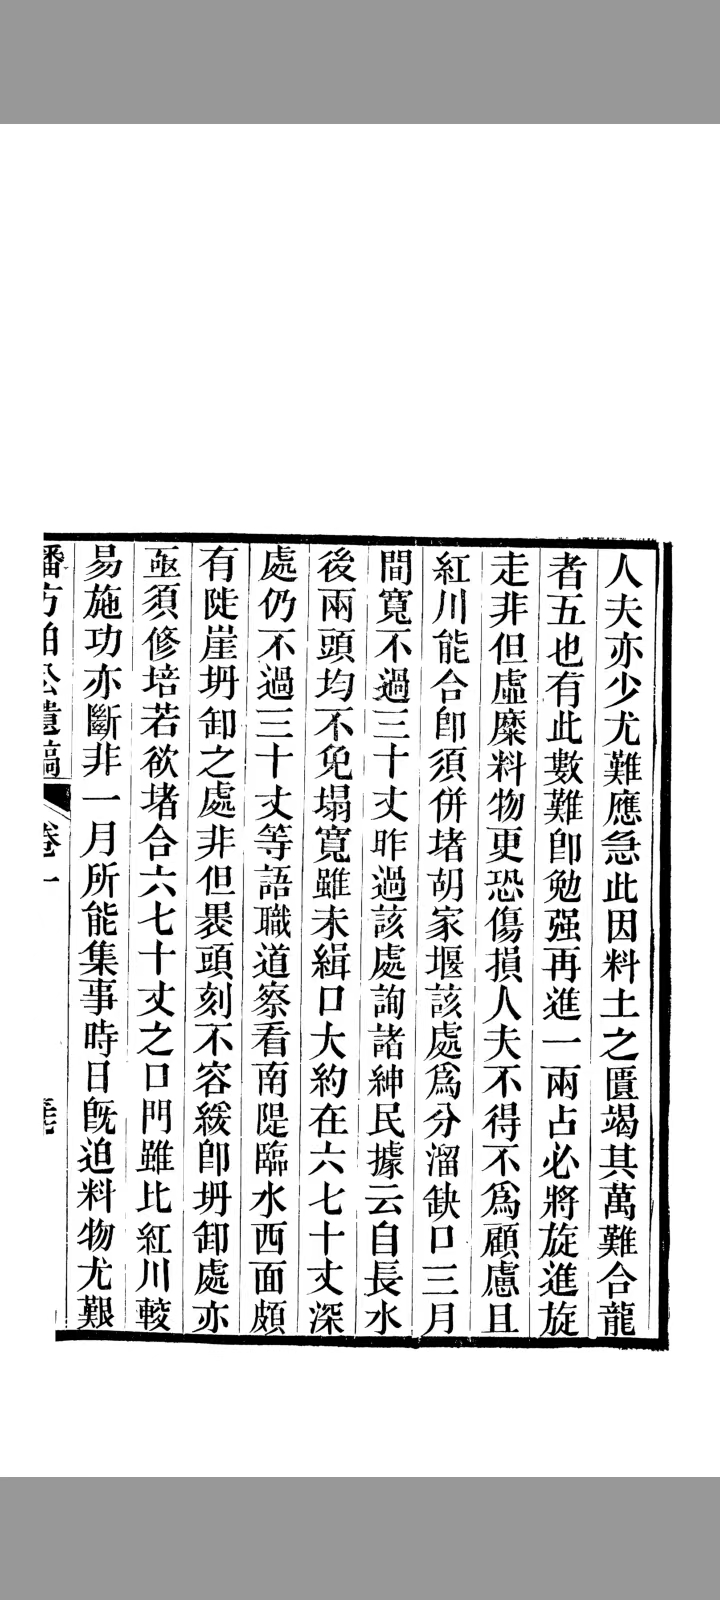 人夫亦少尤難應急此因料土之匱竭其萬難合龍
者五也有此數難卽勉强再進一兩占必將旋進旋
走非但虛糜料物更恐傷損人夫不得不爲顧慮且
紅川能合卽須併堵胡家堰該處爲分溜缺口三月
間寬不過三十丈昨過該處詢諸紳民據云自長水
後兩頭均不免塌寬雖未緝口大約在六七十丈深
處仍不過三十丈等語職道察看南隄臨水西面頗
有陡崖坍卸之處非但㬥頭刻不容緩卽坍卸處亦
亟須修培若欲堵合六七十丈之口門雖比紅川較
易施功亦斷非一月所能集事時日旣迫料物尤艱
潘方伯公遺稿 卷一